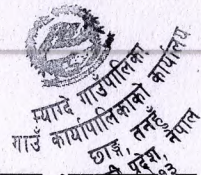 म्याग्दे गाउँपालिका
गाउँ कार्यपालिकाको कार्यालय
छाङ्ग, तनहुँ
प्रदेश, नेपाल